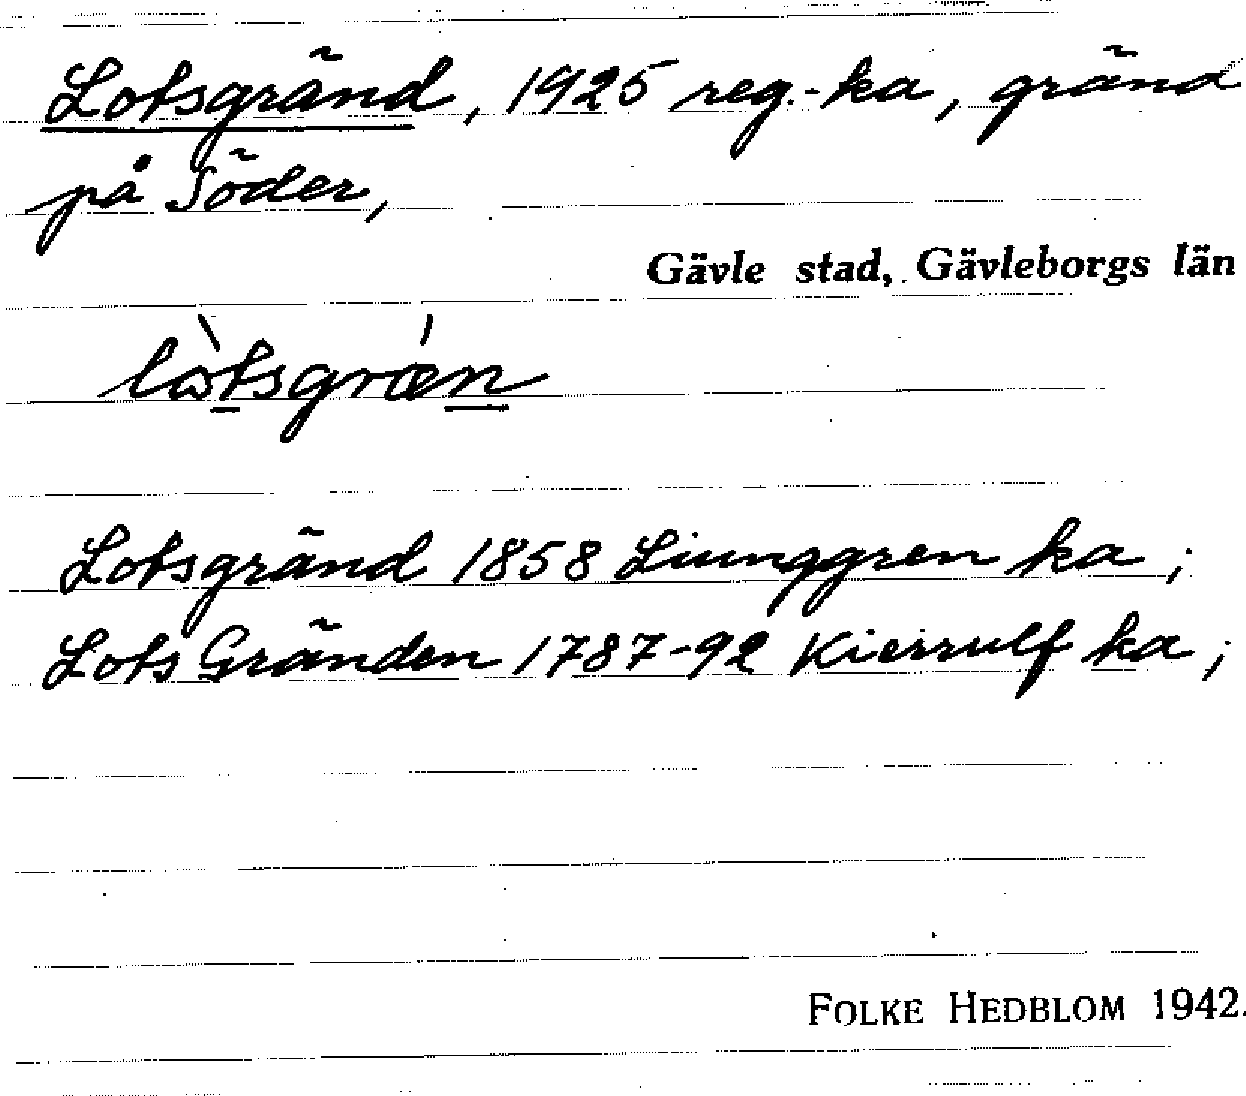 Lotsgränd, 1925 reg.-ka, gränd
på Söder,
Gävle stad, Gävleborgs län
lɷ̀tsgrǽn
Lotsgränd 1858 Liunggren ka;
Lots Gränden 1787-92 Kierrulf ka;
FOLKE HEDBLOM 1942.